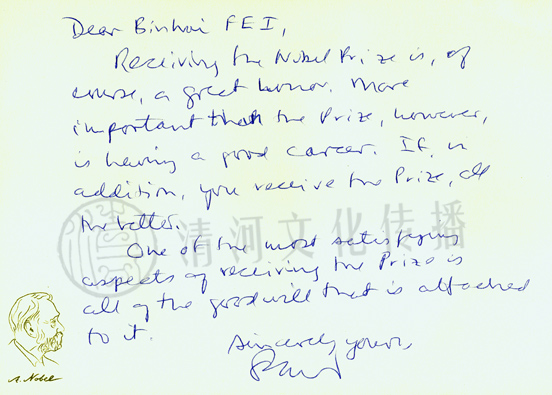 Dear Binhai FEI,
Receiving the Nobel Prize is, of
course, a great honor. More
important than the Prize, however,
is having a good career. If, in
addition, you receive the Prize, all
the better.
One of the most satisfying
aspects of receiving the Prize is
all of the goodwill that is attached
to it.
Sincerely yours,
清河文化传播
A. Nobel